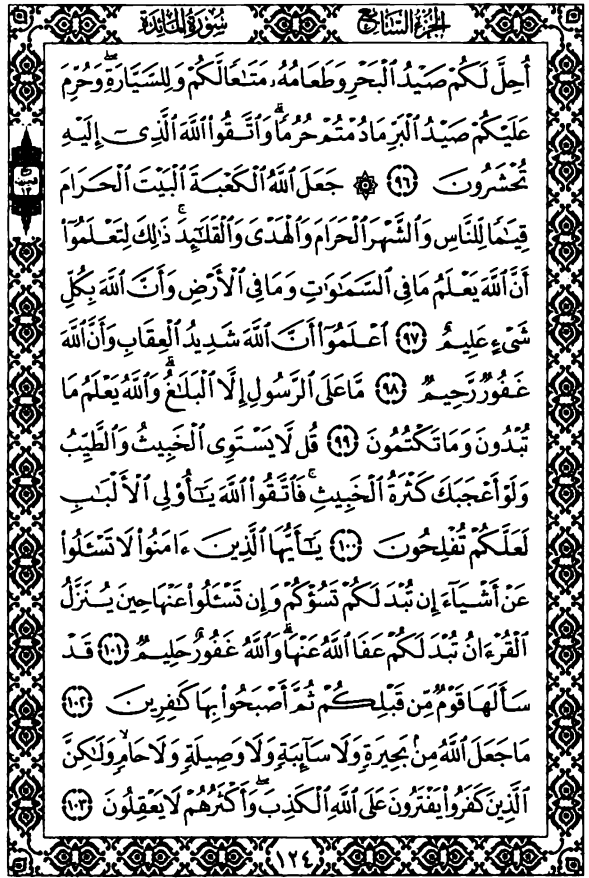 الجزء السابع سورة المائدة
أُحِلَّ لَكُمْ صَيْدُ ٱلْبَحْرِ وَطَعَامُهُۥ مَتَـٰعًا لَّكُمْ وَلِلسَّيَّارَةِ ۖ وَحُرِّمَ
عَلَيْكُمْ صَيْدُ ٱلْبَرِّ مَا دُمْتُمْ حُرُمًا ۗ وَٱتَّقُوا۟ ٱللَّهَ ٱلَّذِىٓ إِلَيْهِ
تُحْشَرُونَ ٩٦ ۞ جَعَلَ ٱللَّهُ ٱلْكَعْبَةَ ٱلْبَيْتَ ٱلْحَرَامَ
قِيَـٰمًا لِّلنَّاسِ وَٱلشَّهْرَ ٱلْحَرَامَ وَٱلْهَدْىَ وَٱلْقَلَـٰٓئِدَ ۚ ذَٰلِكَ لِتَعْلَمُوٓا۟
أَنَّ ٱللَّهَ يَعْلَمُ مَا فِى ٱلسَّمَـٰوَٰتِ وَمَا فِى ٱلْأَرْضِ وَأَنَّ ٱللَّهَ بِكُلِّ
شَىْءٍ عَلِيمٌ ٩٧ ٱعْلَمُوٓا۟ أَنَّ ٱللَّهَ شَدِيدُ ٱلْعِقَابِ وَأَنَّ ٱللَّهَ
غَفُورٌ رَّحِيمٌ ٩٨ مَّا عَلَى ٱلرَّسُولِ إِلَّا ٱلْبَلَـٰغُ ۗ وَٱللَّهُ يَعْلَمُ مَا
تُبْدُونَ وَمَا تَكْتُمُونَ ٩٩ قُل لَّا يَسْتَوِى ٱلْخَبِيثُ وَٱلطَّيِّبُ
وَلَوْ أَعْجَبَكَ كَثْرَةُ ٱلْخَبِيثِ ۚ فَٱتَّقُوا۟ ٱللَّهَ يَـٰٓأُو۟لِى ٱلْأَلْبَـٰبِ
لَعَلَّكُمْ تُفْلِحُونَ ١٠٠ يَـٰٓأَيُّهَا ٱلَّذِينَ ءَامَنُوا۟ لَا تَسْـَٔلُوا۟
عَنْ أَشْيَآءَ إِن تُبْدَ لَكُمْ تَسُؤْكُمْ وَإِن تَسْـَٔلُوا۟ عَنْهَا حِينَ يُنَزَّلُ
ٱلْقُرْءَانُ تُبْدَ لَكُمْ عَفَا ٱللَّهُ عَنْهَا ۗ وَٱللَّهُ غَفُورٌ حَلِيمٌ ١٠١ قَدْ
سَأَلَهَا قَوْمٌ مِّن قَبْلِكُمْ ثُمَّ أَصْبَحُوا۟ بِهَا كَـٰفِرِينَ ١٠٢
مَا جَعَلَ ٱللَّهُ مِنۢ بَحِيرَةٍ وَلَا سَآئِبَةٍ وَلَا وَصِيلَةٍ وَلَا حَامٍ ۙ وَلَـٰكِنَّ
ٱلَّذِينَ كَفَرُوا۟ يَفْتَرُونَ عَلَى ٱللَّهِ ٱلْكَذِبَ ۖ وَأَكْثَرُهُمْ لَا يَعْقِلُونَ ١٠٣
١٢٤